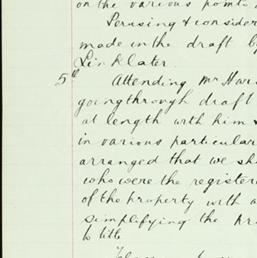 on the various points
Perusing & consider
made in the draft b
Linklater.
5th Attending Mr Har
going through draft
at length with him &
in various particular
arranged that we sh
who were the register
of the property with a
simplifying the pr
to title